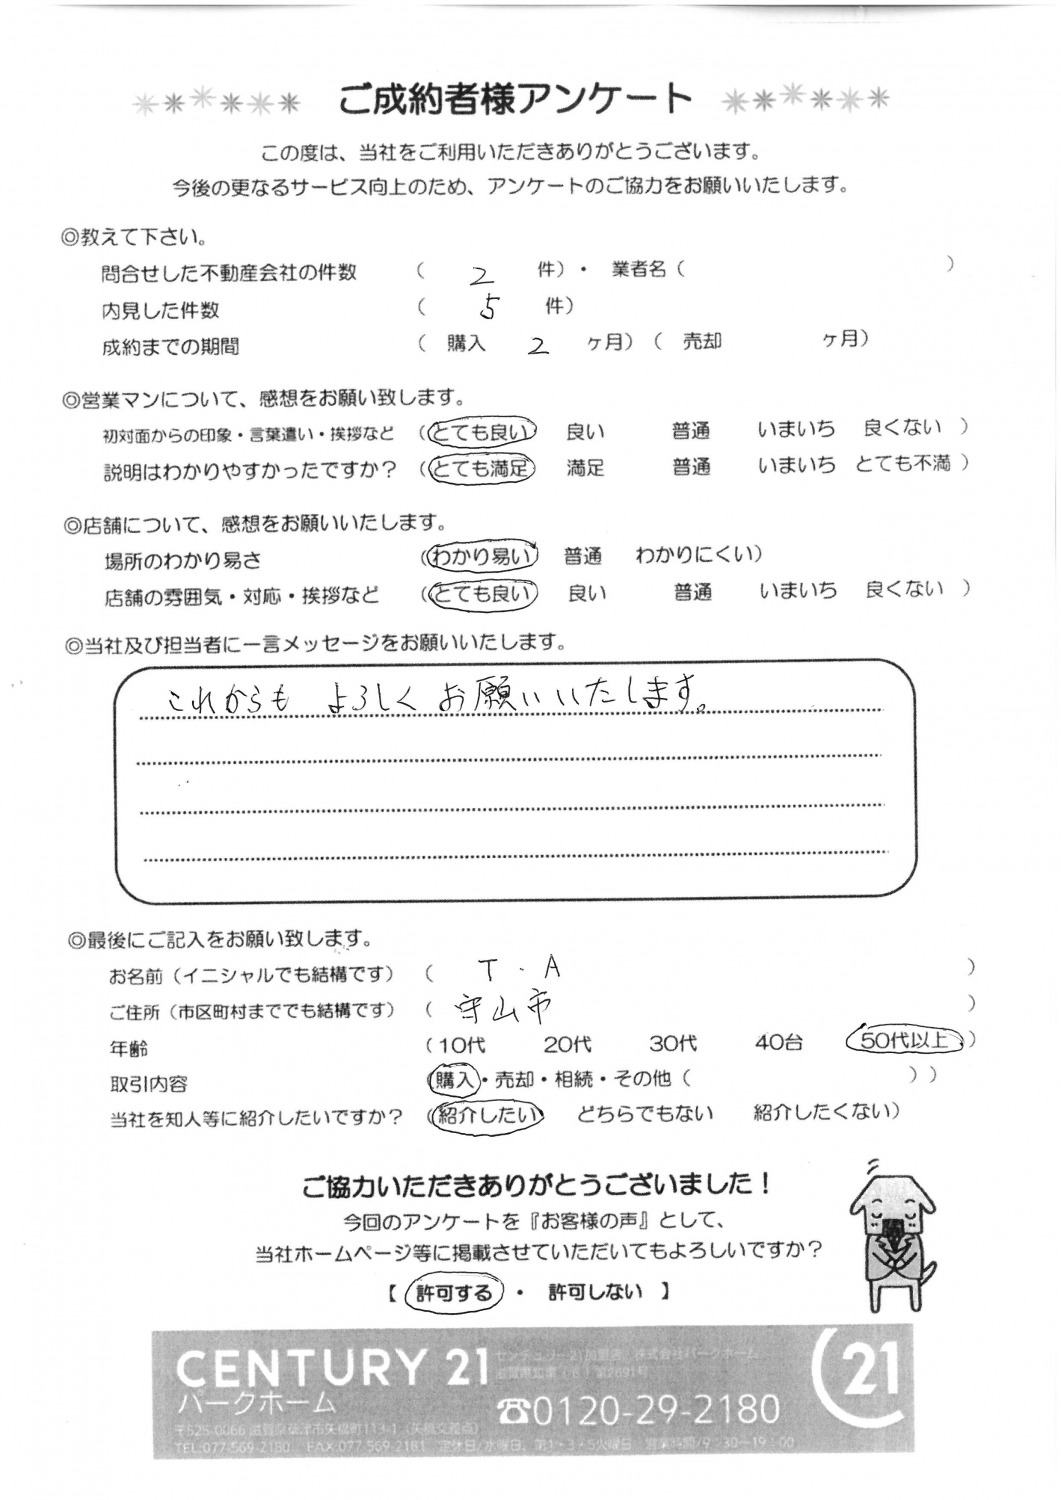 ご成約者様アンケート
この度は、当社をご利用いただきありがとうございます。
今後の更なるサービス向上のため、アンケートのご協力をお願いいたします。
◎教えて下さい。
問合せした不動産会社の件数 ( 2 件)・ 業者名 ( )
内見した件数 ( 5 件)
成約までの期間 ( 購入 2 ヶ月) ( 売却 ヶ月)
◎営業マンについて、感想をお願い致します。
初対面からの印象・言葉遣い・挨拶など (とても良い 良い 普通 いまいち 良くない )
説明はわかりやすかったですか? (とても満足 満足 普通 いまいち とても不満 )
◎店舗について、感想をお願いいたします。
場所のわかり易さ (わかり易い 普通 わかりにくい)
店舗の雰囲気・対応・挨拶など (とても良い 良い 普通 いまいち 良くない )
◎当社及び担当者に一言メッセージをお願いいたします。
これからも よろしく お願いいたします。
◎最後にご記入をお願い致します。
お名前(イニシャルでも結構です) ( T . A )
ご住所(市区町村まででも結構です) ( 守山市 )
年齢 (10代 20代 30代 40台 50代以上 )
取引内容 (購入・売却・相続・その他 ( ) )
当社を知人等に紹介したいですか? (紹介したい どちらでもない 紹介したくない)
ご協力いただきありがとうございました!
今回のアンケートを『お客様の声』として、
当社ホームページ等に掲載させていただいてもよろしいですか?
【 許可する ・ 許可しない 】
CENTURY 21 センチュリー21加盟店 株式会社パークホーム
パークホーム
☎0120-29-2180
21
〒525-0066 滋賀県草津市矢橋町113-1 (矢橋交差点)
TEL:077-569-2180 FAX:077-569-2181 定休日/水曜日、第1・3・5火曜日 営業時間/9:30~19:00